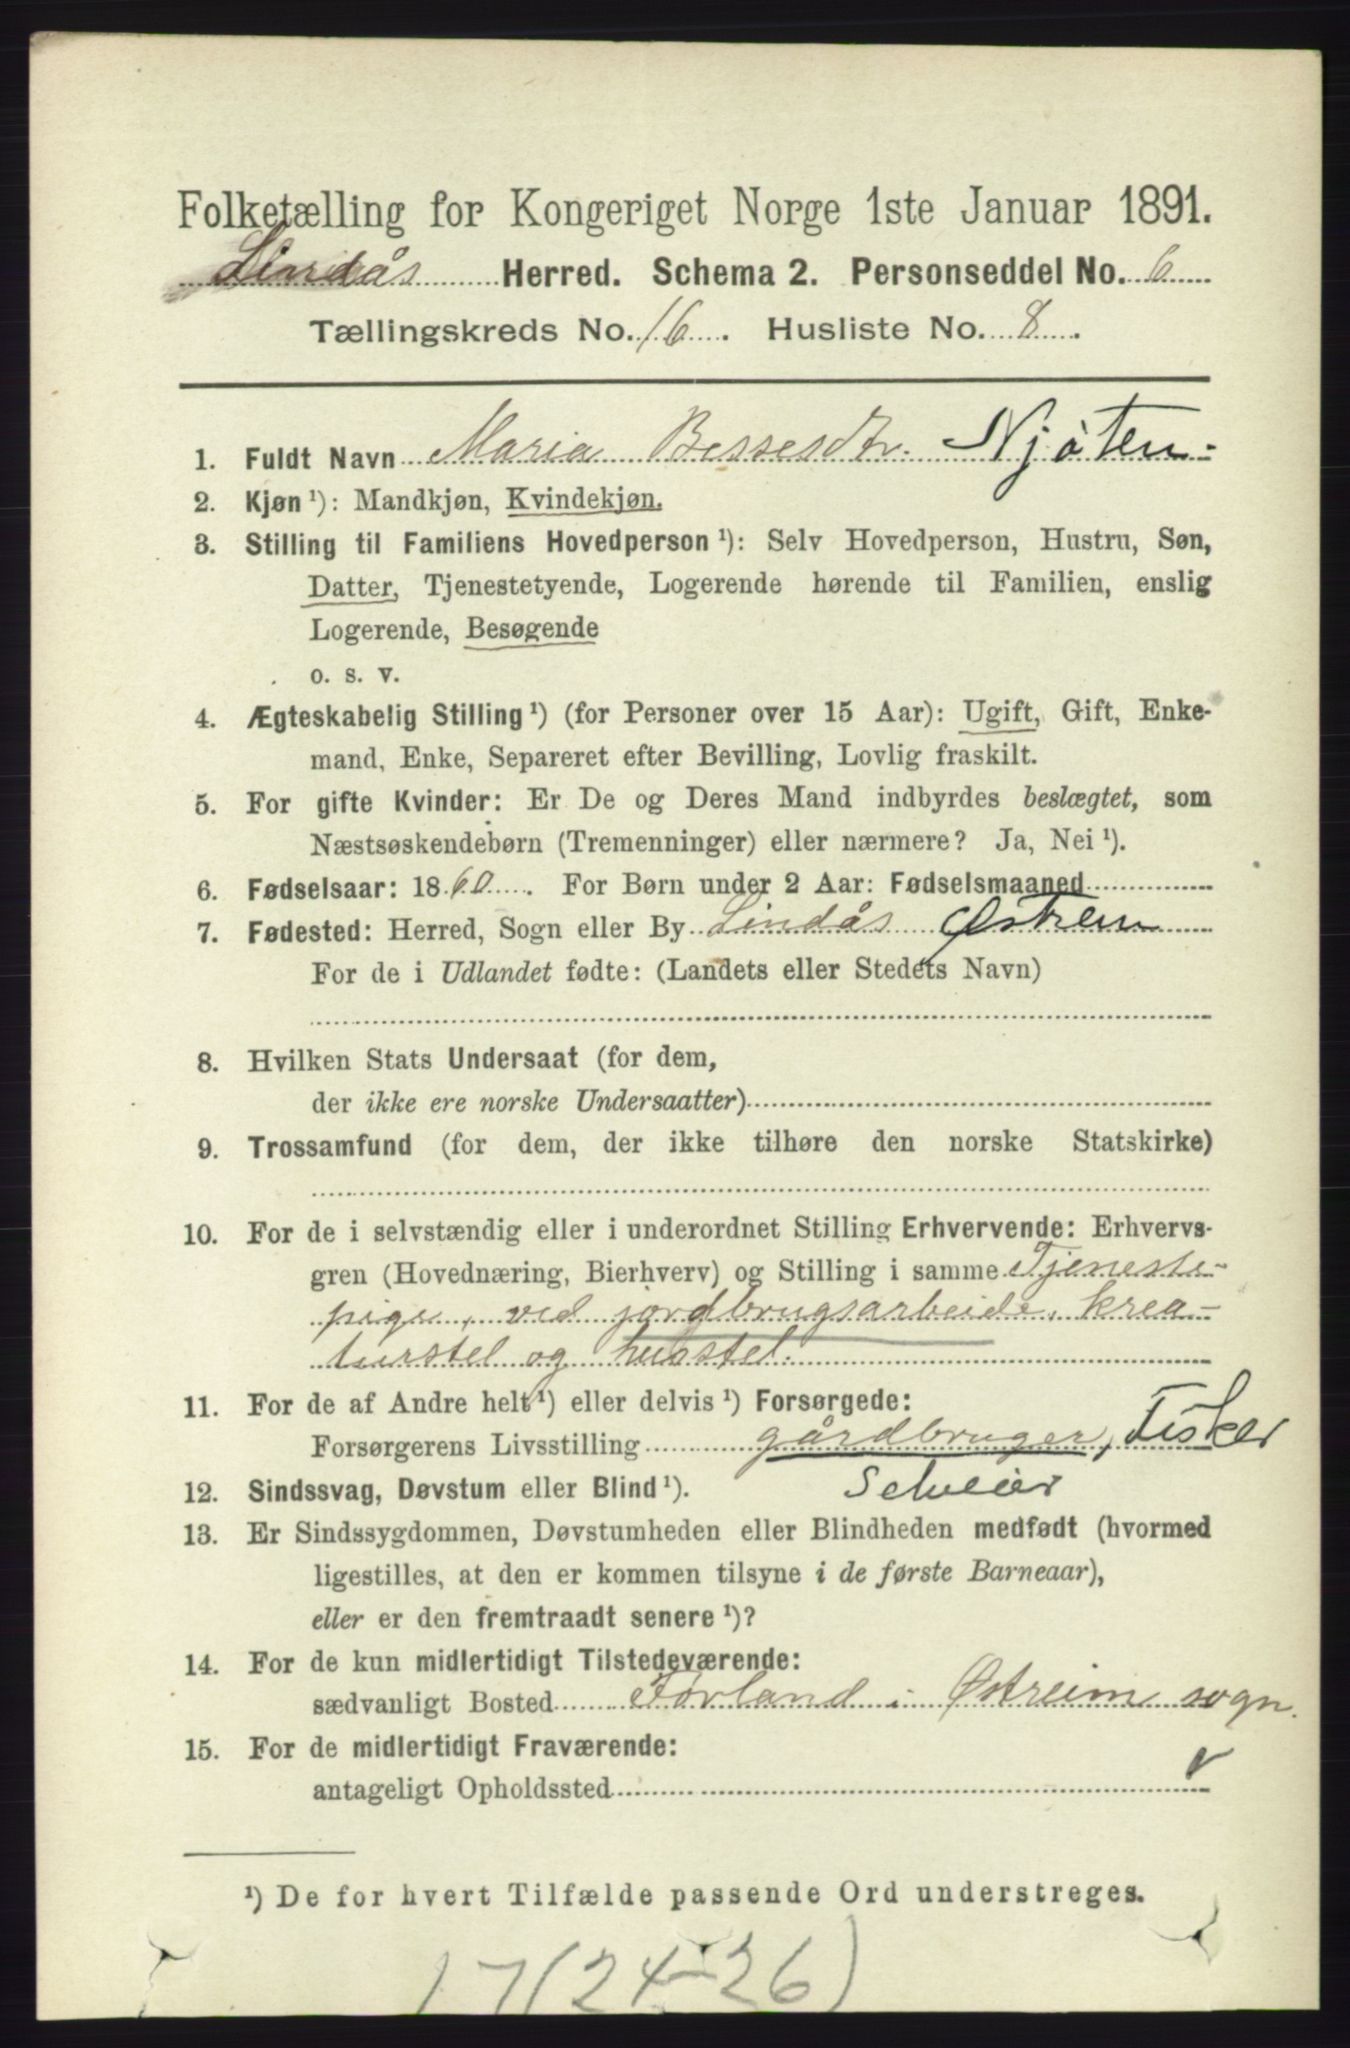 Folketælling for Kongeriget Norge 1ste Januar 1891.
Lindås Herred. Schema 2. Personseddel No. 6
Tællingskreds No. 16. Husliste No. 8.
1. Fuldt Navn Maria Bessesdtr. Njøten.
2. Kjøn ¹): Mandkjøn, Kvindekjøn.
3. Stilling til Familiens Hovedperson ¹): Selv Hovedperson, Hustru, Søn,
Datter, Tjenestetyende, Logerende hørende til Familien, enslig
Logerende, Besøgende
o. s. v.
4. Ægteskabelig Stilling ¹) (for Personer over 15 Aar): Ugift, Gift, Enke-
mand, Enke, Separeret efter Bevilling, Lovlig fraskilt.
5. For gifte Kvinder: Er De og Deres Mand indbyrdes beslægtet, som
Næstsøskendebørn (Tremenninger) eller nærmere? Ja, Nei ¹).
6. Fødselsaar: 1860. For Børn under 2 Aar: Fødselsmaaned
7. Fødested: Herred, Sogn eller By Lindås Østrem
For de i Udlandet fødte: (Landets eller Stedets Navn)
8. Hvilken Stats Undersaat (for dem,
der ikke ere norske Undersaatter)
9. Trossamfund (for dem, der ikke tilhøre den norske Statskirke)
10. For de i selvstændig eller i underordnet Stilling Erhvervende: Erhvervs-
gren (Hovednæring, Bierhverv) og Stilling i samme Tjeneste-
pige, ved jordbrugsarbeide, krea-
turstel og husstel.
11. For de af Andre helt ¹) eller delvis ¹) Forsørgede:
Forsørgerens Livsstilling gårdbruger, Fisker
12. Sindssvag, Døvstum eller Blind ¹). Selveier
13. Er Sindssygdommen, Døvstumheden eller Blindheden medfødt (hvormed
ligestilles, at den er kommen tilsyne i de første Barneaar),
eller er den fremtraadt senere ¹)?
14. For de kun midlertidigt Tilstedeværende:
sædvanligt Bosted Forland i Østreim sogn.
15. For de midlertidigt Fraværende:
antageligt Opholdssted
¹) De for hvert Tilfælde passende Ord understreges.
17(24-26)